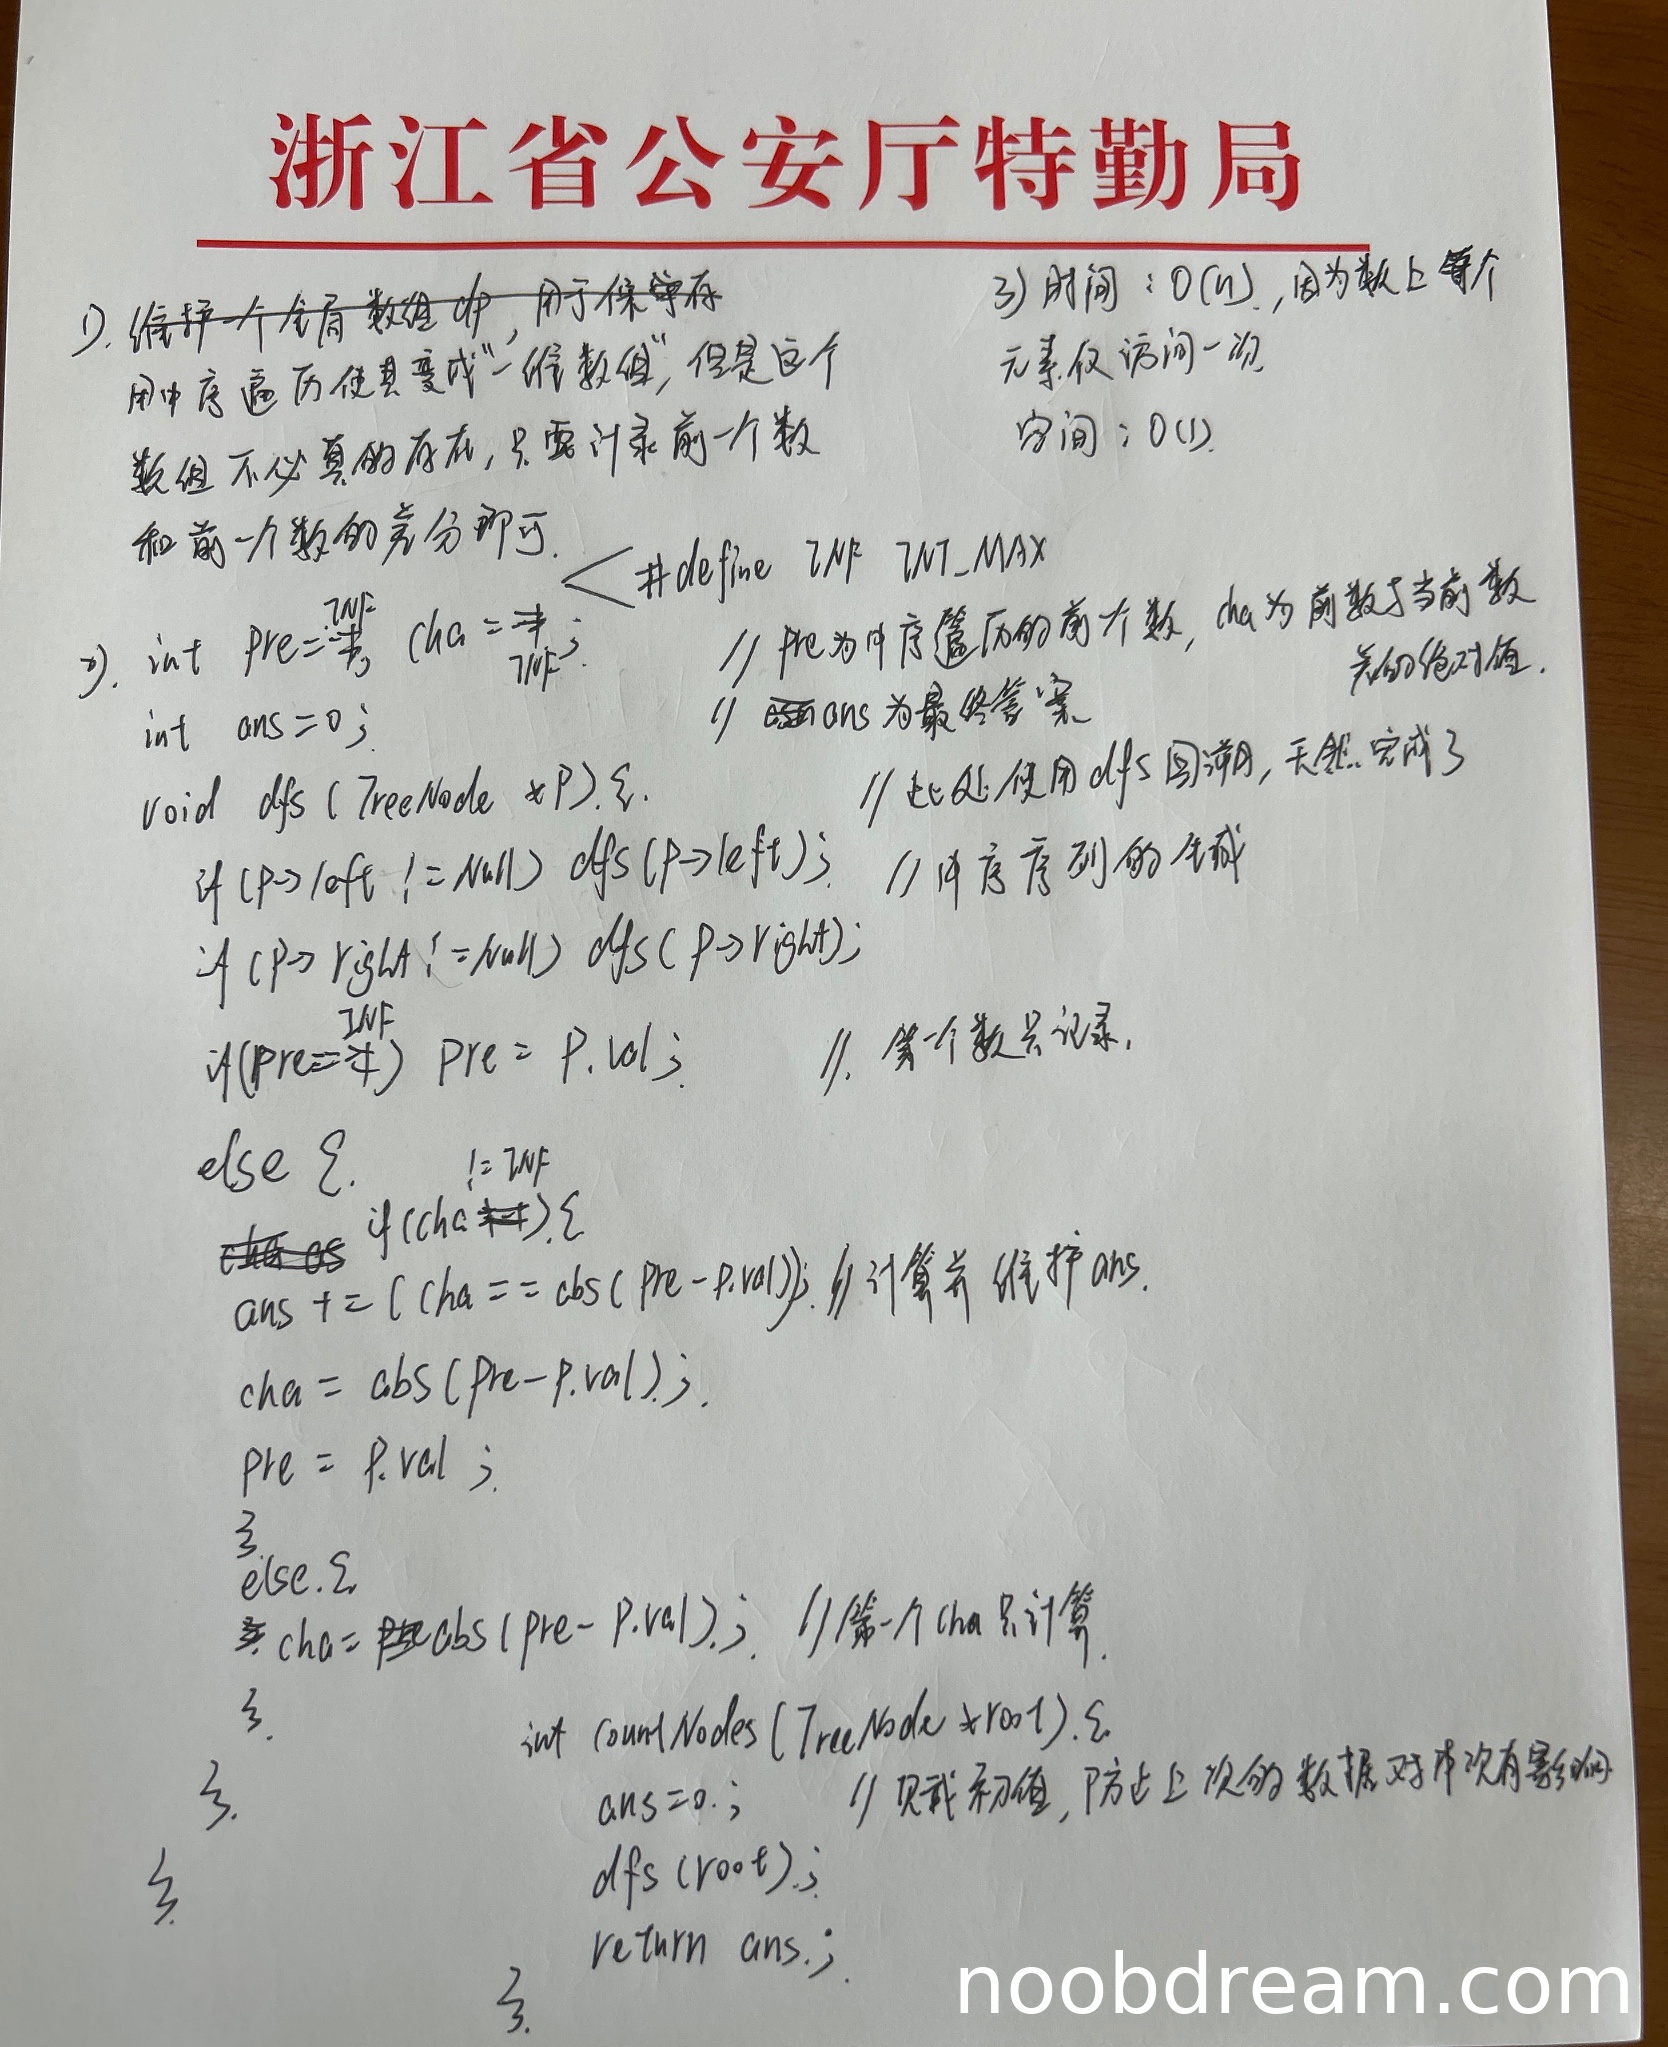 浙江省公安厅特勤局
1). 维护一个全局数组dp, 用于保存
用中序遍历使其变成“一维数组”, 但是这个
数组不必真的存在, 只要记录前一个数
和前一个数的差分即可.
#define INF INT_MAX
2). int pre=INF, cha=INF; // pre为中序遍历的前一个数, cha为前数与当前数
差的绝对值.
int ans=0; // ans为最终答案
void dfs(TreeNode *P){ // 此处使用dfs回溯, 天然完成了
if(P->left !=Null) dfs(P->left); // 中序序列的生成
if(P->right !=Null) dfs(P->right);
if(pre==INF) pre = P.val; // 第一个数只记录.
else {
if(cha != INF){
ans += (cha == abs(pre-P.val)); // 计算并维护ans.
cha = abs(pre-P.val);
pre = P.val;
}
else {
cha = abs(pre-P.val); // 第一个cha只计算.
}
}
}
int countNodes(TreeNode *root){
ans=0; // 赋初值, 防止上次的数据对本次有影响
dfs(root);
return ans;
}
3) 时间: O(n), 因为数上每个
元素仅访问一次
空间: O(1).
noobdream.com